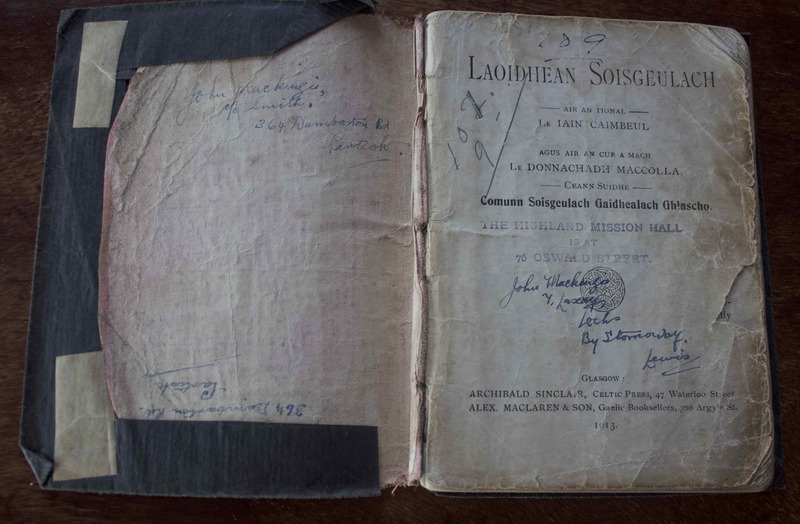 John Mackenzie,
c/o Smith.
364 Dumbarton Rd
Partick.
364 Dumbarton Rd.
Partick
109
LAOIDHEAN SOISGEULACH
AIR AN TIONAL
LE IAIN CAIMBEUL
AGUS AIR AN CUR A MACH
LE DONNACHADH MACCOLLA
CEANN SUIDHE
Comunn Soisgeulach Gaidhealach Ghlascho.
THE HIGHLAND MISSION HALL
IS AT
76 OSWALD STREET.
John Mackenzie
7, Laxay,
Lochs
By Stornoway.
Lewis
GLASGOW:
ARCHIBALD SINCLAIR, CELTIC PRESS, 47 Waterloo Street
ALEX. MACLAREN & SON, Gaelic Booksellers, Argyle St.
1913.